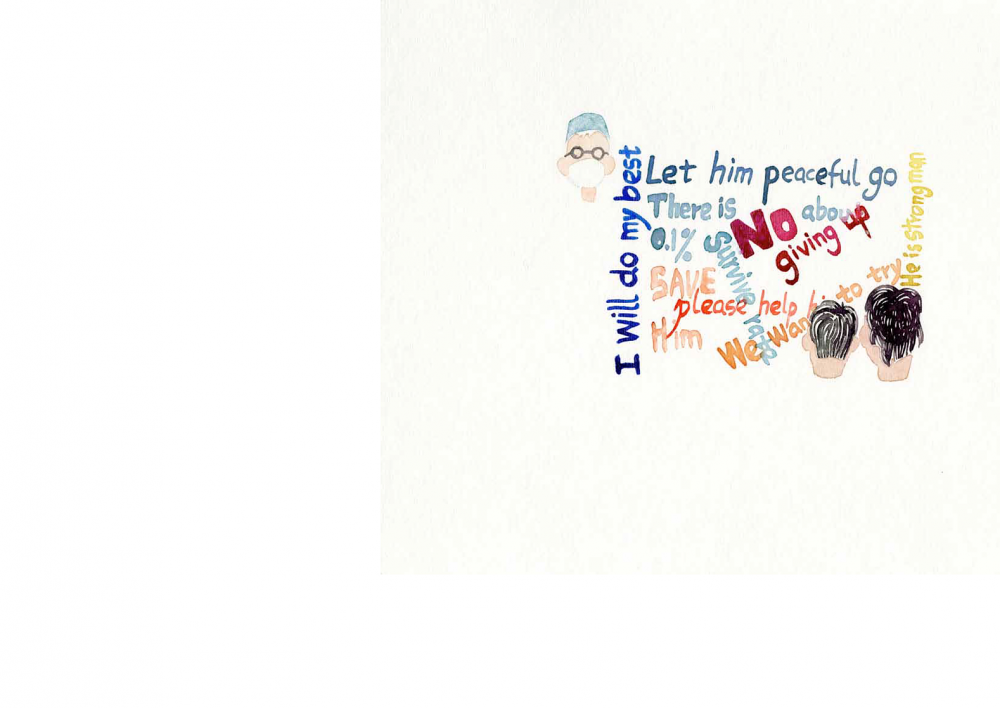 I will do my best
Let him peaceful go
There is about
0.1%
survive rate
No
giving up
SAVE
Him
please help him
We want to try
He is strong man